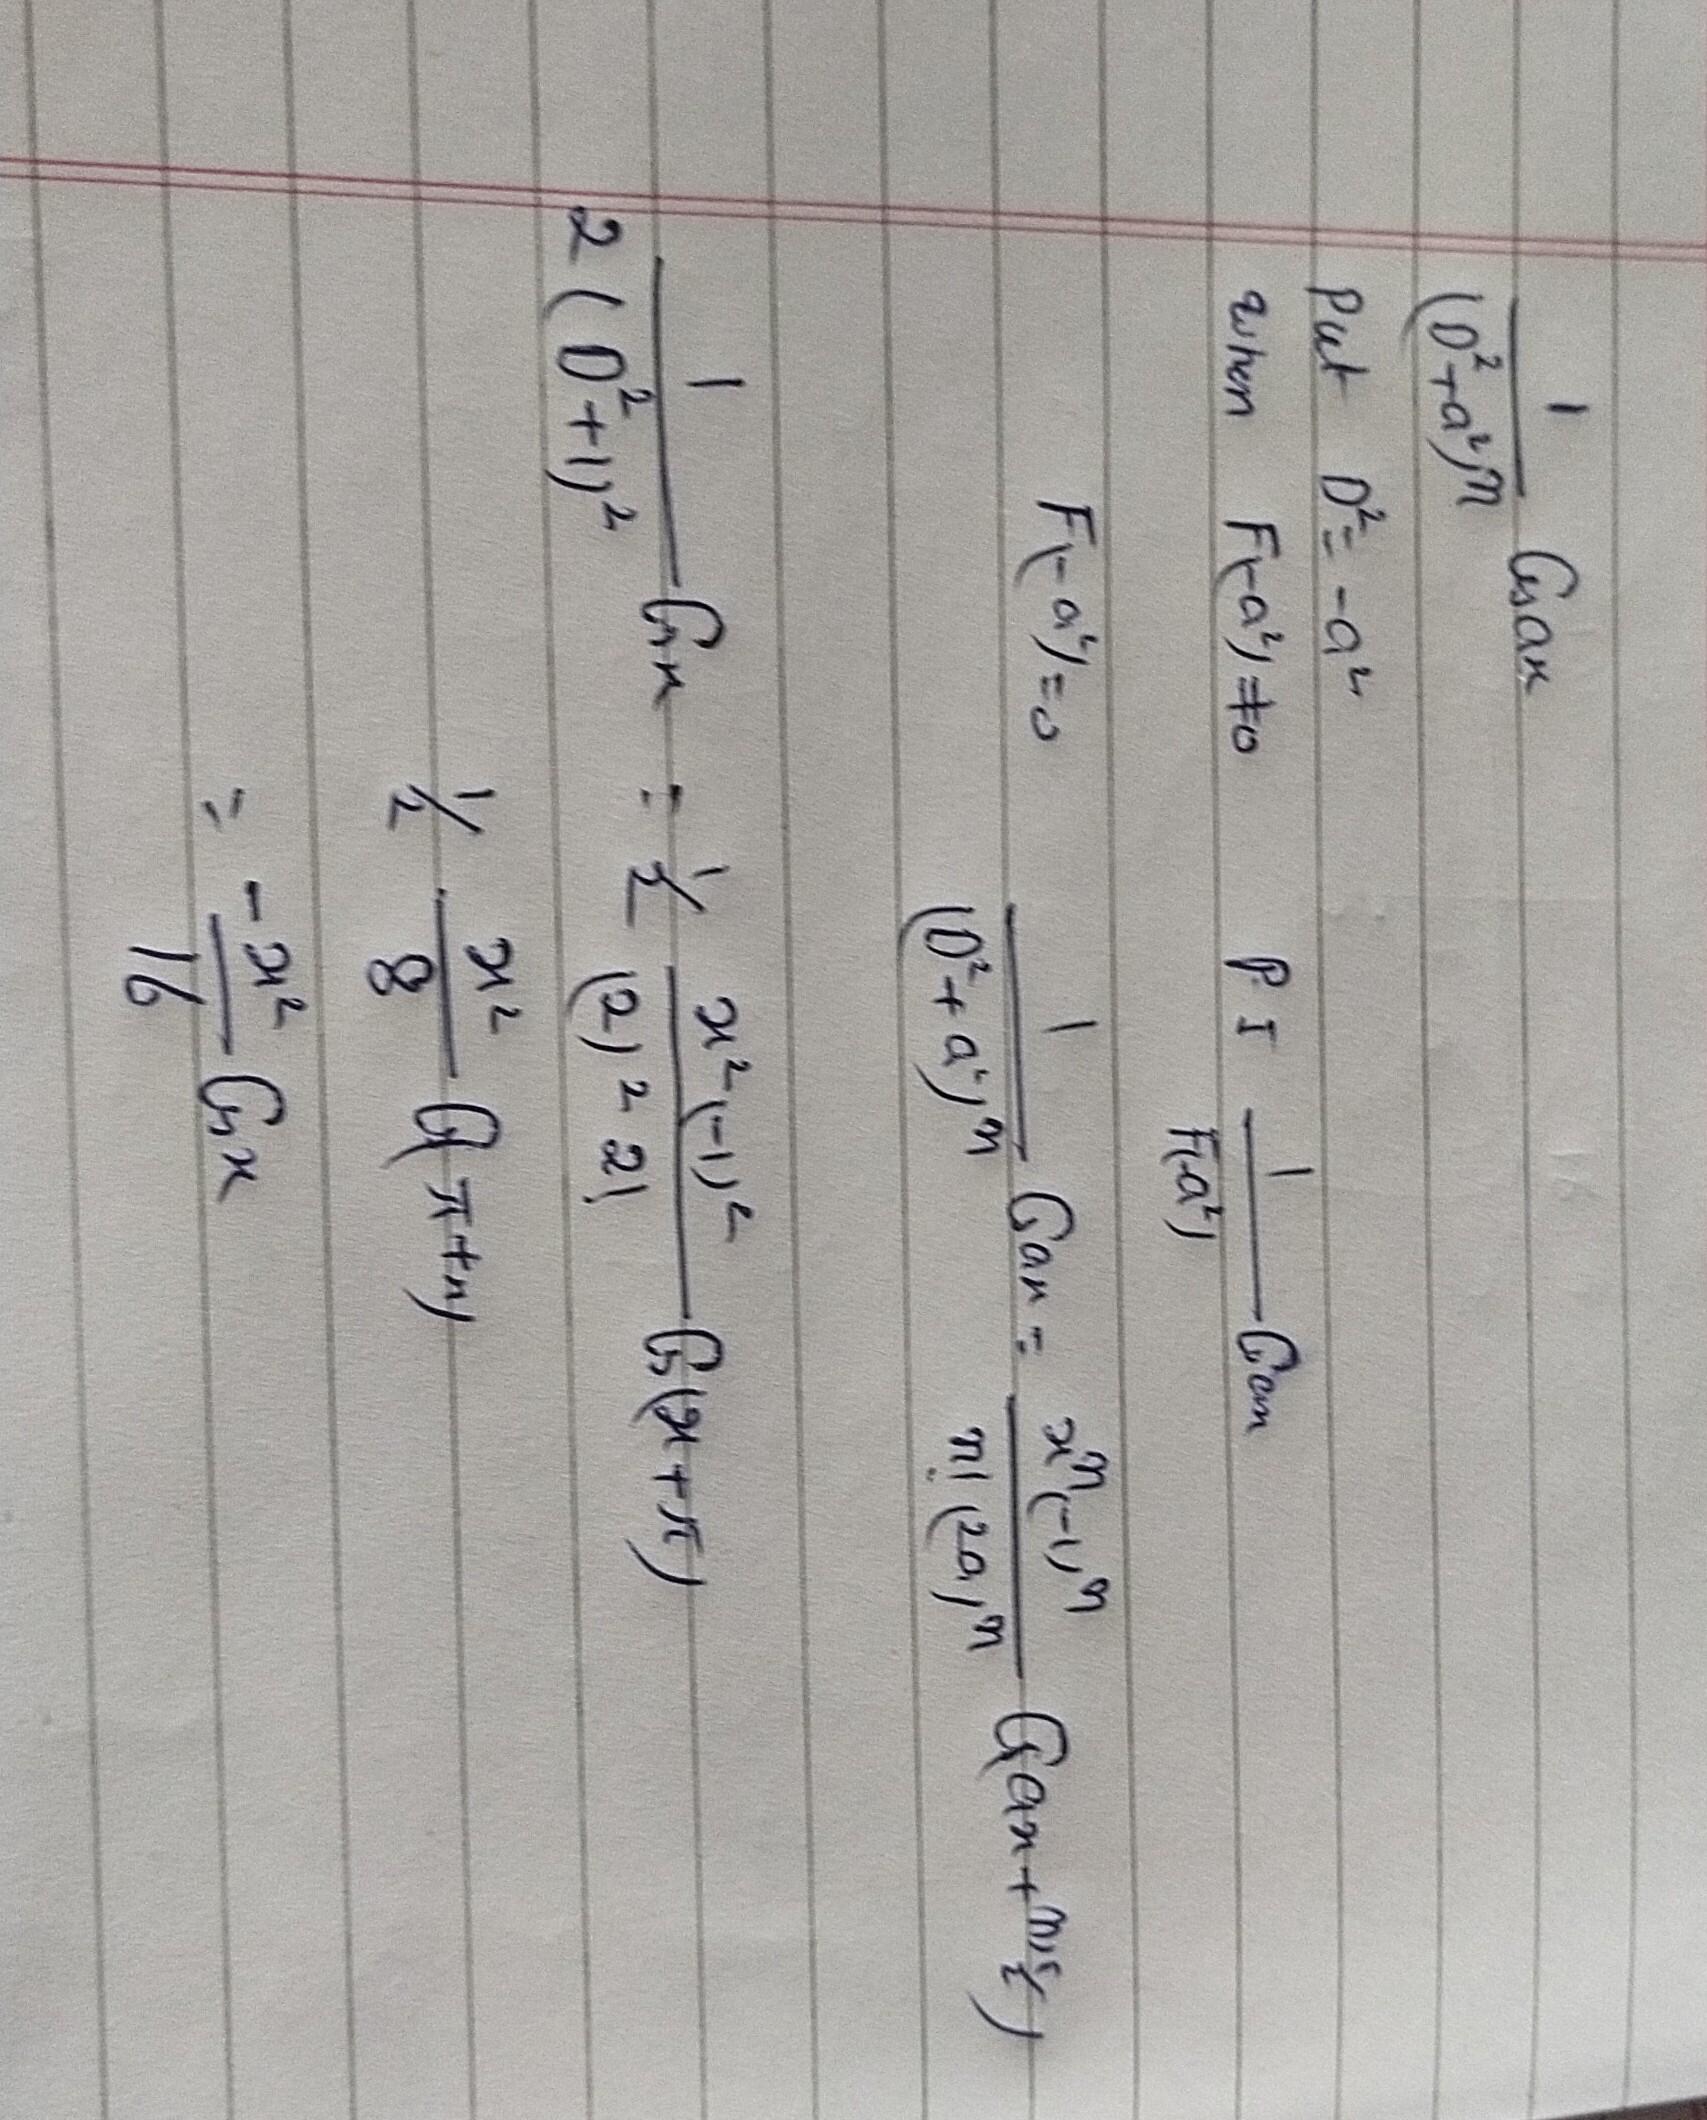 1/(D²+a²)ⁿ Cos ax
Put D² = -a²
when F(-a²) ≠ 0 P I 1/F(-a²) Cos ax
F(-a²) = 0 1/(D²+a²)ⁿ Cos ax = xⁿ(-1)ⁿ/n!(2a)ⁿ Cos(ax + nπ/2)
1/2(D²+1)² Cos x = 1/2 x²(-1)²/(2)² 2! Cos(x+π)
1/2 x²/8 Cos(π+x)
= -x²/16 Cos x